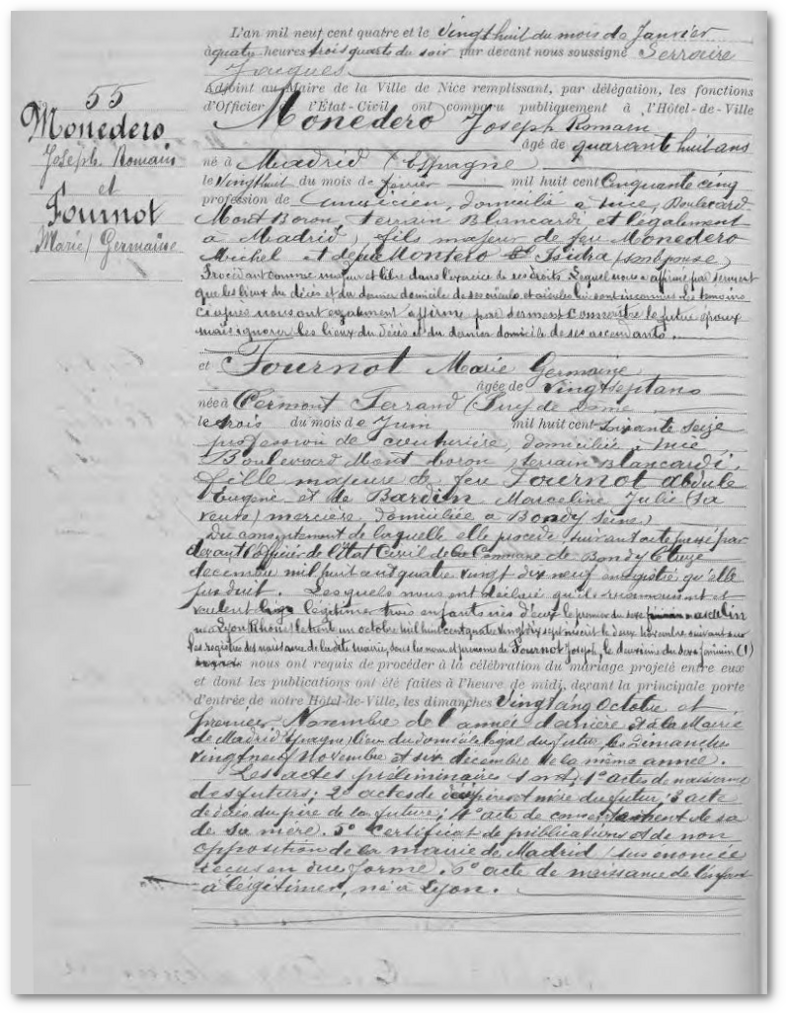 L'an mil neuf cent quatre et le vingt huit du mois de Janvier
à quatre heures trois quarts du soir par devant nous soussigné Serraire
Jacques
Adjoint au Maire de la Ville de Nice remplissant, par délégation, les fonctions
d'Officier de l'État-Civil ont comparu publiquement à l'Hôtel-de-Ville
55
Monedero
Joseph Romain
et
Fournot
Marie Germaine
Monedero Joseph Romain
âgé de quarante huit ans
né à Madrid (Espagne)
le vingt huit du mois de février mil huit cent Cinquante cinq
profession de musicien, domicilié à Nice, Boulevard
Mont Boron terrain Blancardi et légalement
à Madrid, fils majeur de feu Monedero
Michel et de feue Montero Isidra, son épouse,
Procédant comme majeur et libre dans l'exercice de ses droits. Lequel nous a affirmé par serment
que les lieux du décès et du dernier domicile de ses aïeuls et aïeules lui sont inconnus. Les témoins
ci après nous ont également affirmé par serment connaître le futur époux
mais ignorer les lieux du décès et du dernier domicile de ses ascendants.
et Fournot Marie Germaine
âgée de vingt sept ans
née à Clermont Ferrand (Puy de Dôme
le trois du mois de Juin mil huit cent soixante seize
profession de couturière, domiciliée à Nice
Boulevard Mont boron, terrain Blancardi.
fille majeure de feu Fournot
Eugène et de Bardin Marceline Julie (sa
veuve) mercière domiciliée à Bondy Seine)
Du consentement de laquelle elle procède suivant acte passé par
devant l'officier de l'État Civil de la Commune de Bondy le treize
décembre mil huit cent quatre vingt dix neuf enregistré qu'elle
produit. Lesquels nous ont déclaré qu'ils reconnaissent et
veulent légitimer trois enfants nés d'eux le premier du sexe masculin
né à Lyon Rhône) le trente un octobre mil huit cent quatre vingt dix sept inscrit le deux novembre suivant sur
les registres de naissance de la dite mairie, sous les nom et prénoms de Fournot Joseph, le deuxième du sexe féminin (1)
nous ont requis de procéder à la célébration du mariage projeté entre eux
et dont les publications ont été faites à l'heure de midi, devant la principale porte
d'entrée de notre Hôtel-de-Ville, les dimanches vingt cinq Octobre et
premier Novembre de l'année dernière et à la Mairie
de Madrid (Espagne) lieu du domicile légal du futur, les Dimanches
vingt neuf Novembre et six décembre de la même année.
Les actes préliminaires sont, 1° actes de naissance
des futurs; 2° actes de décès père et mère du futur; 3° acte
de décès du père de la future; 4° acte de consentement de sa
de sa mère. 5° Certificat de publications et de non
opposition de la mairie de Madrid (sus énoncée
reçus en due forme. 6° acte de naissance de l'enfant
à légitimer, né à Lyon.